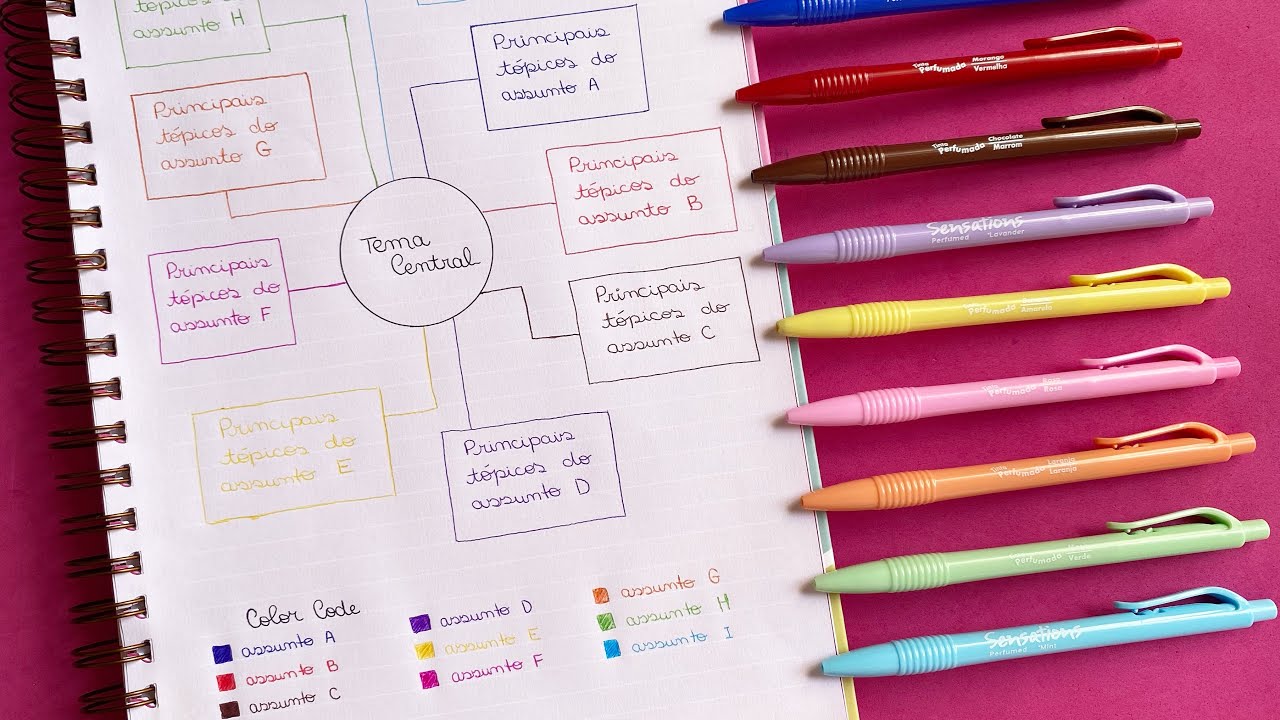 assunto H
Principais
tópicos do
assunto G
Principais
tópicos do
assunto F
Principais
tópicos do
assunto E
Tema
Central
Principais
tópicos do
assunto A
Principais
tópicos do
assunto B
Principais
tópicos do
assunto C
Principais
tópicos do
assunto D
Color Code
assunto A
assunto B
assunto C
assunto D
assunto E
assunto F
assunto G
assunto H
assunto I
Tinta Perfumada Morango
Vermelha
Tinta Perfumada Chocolate
Marrom
Sensations
Perfumed *Lavander
Tinta Perfumada
Amarela
Tinta Perfumada Rosa
Rosa
Tinta Perfumada Laranja
Laranja
Tinta Perfumada
Verde
Sensations
Perfumed *Mint